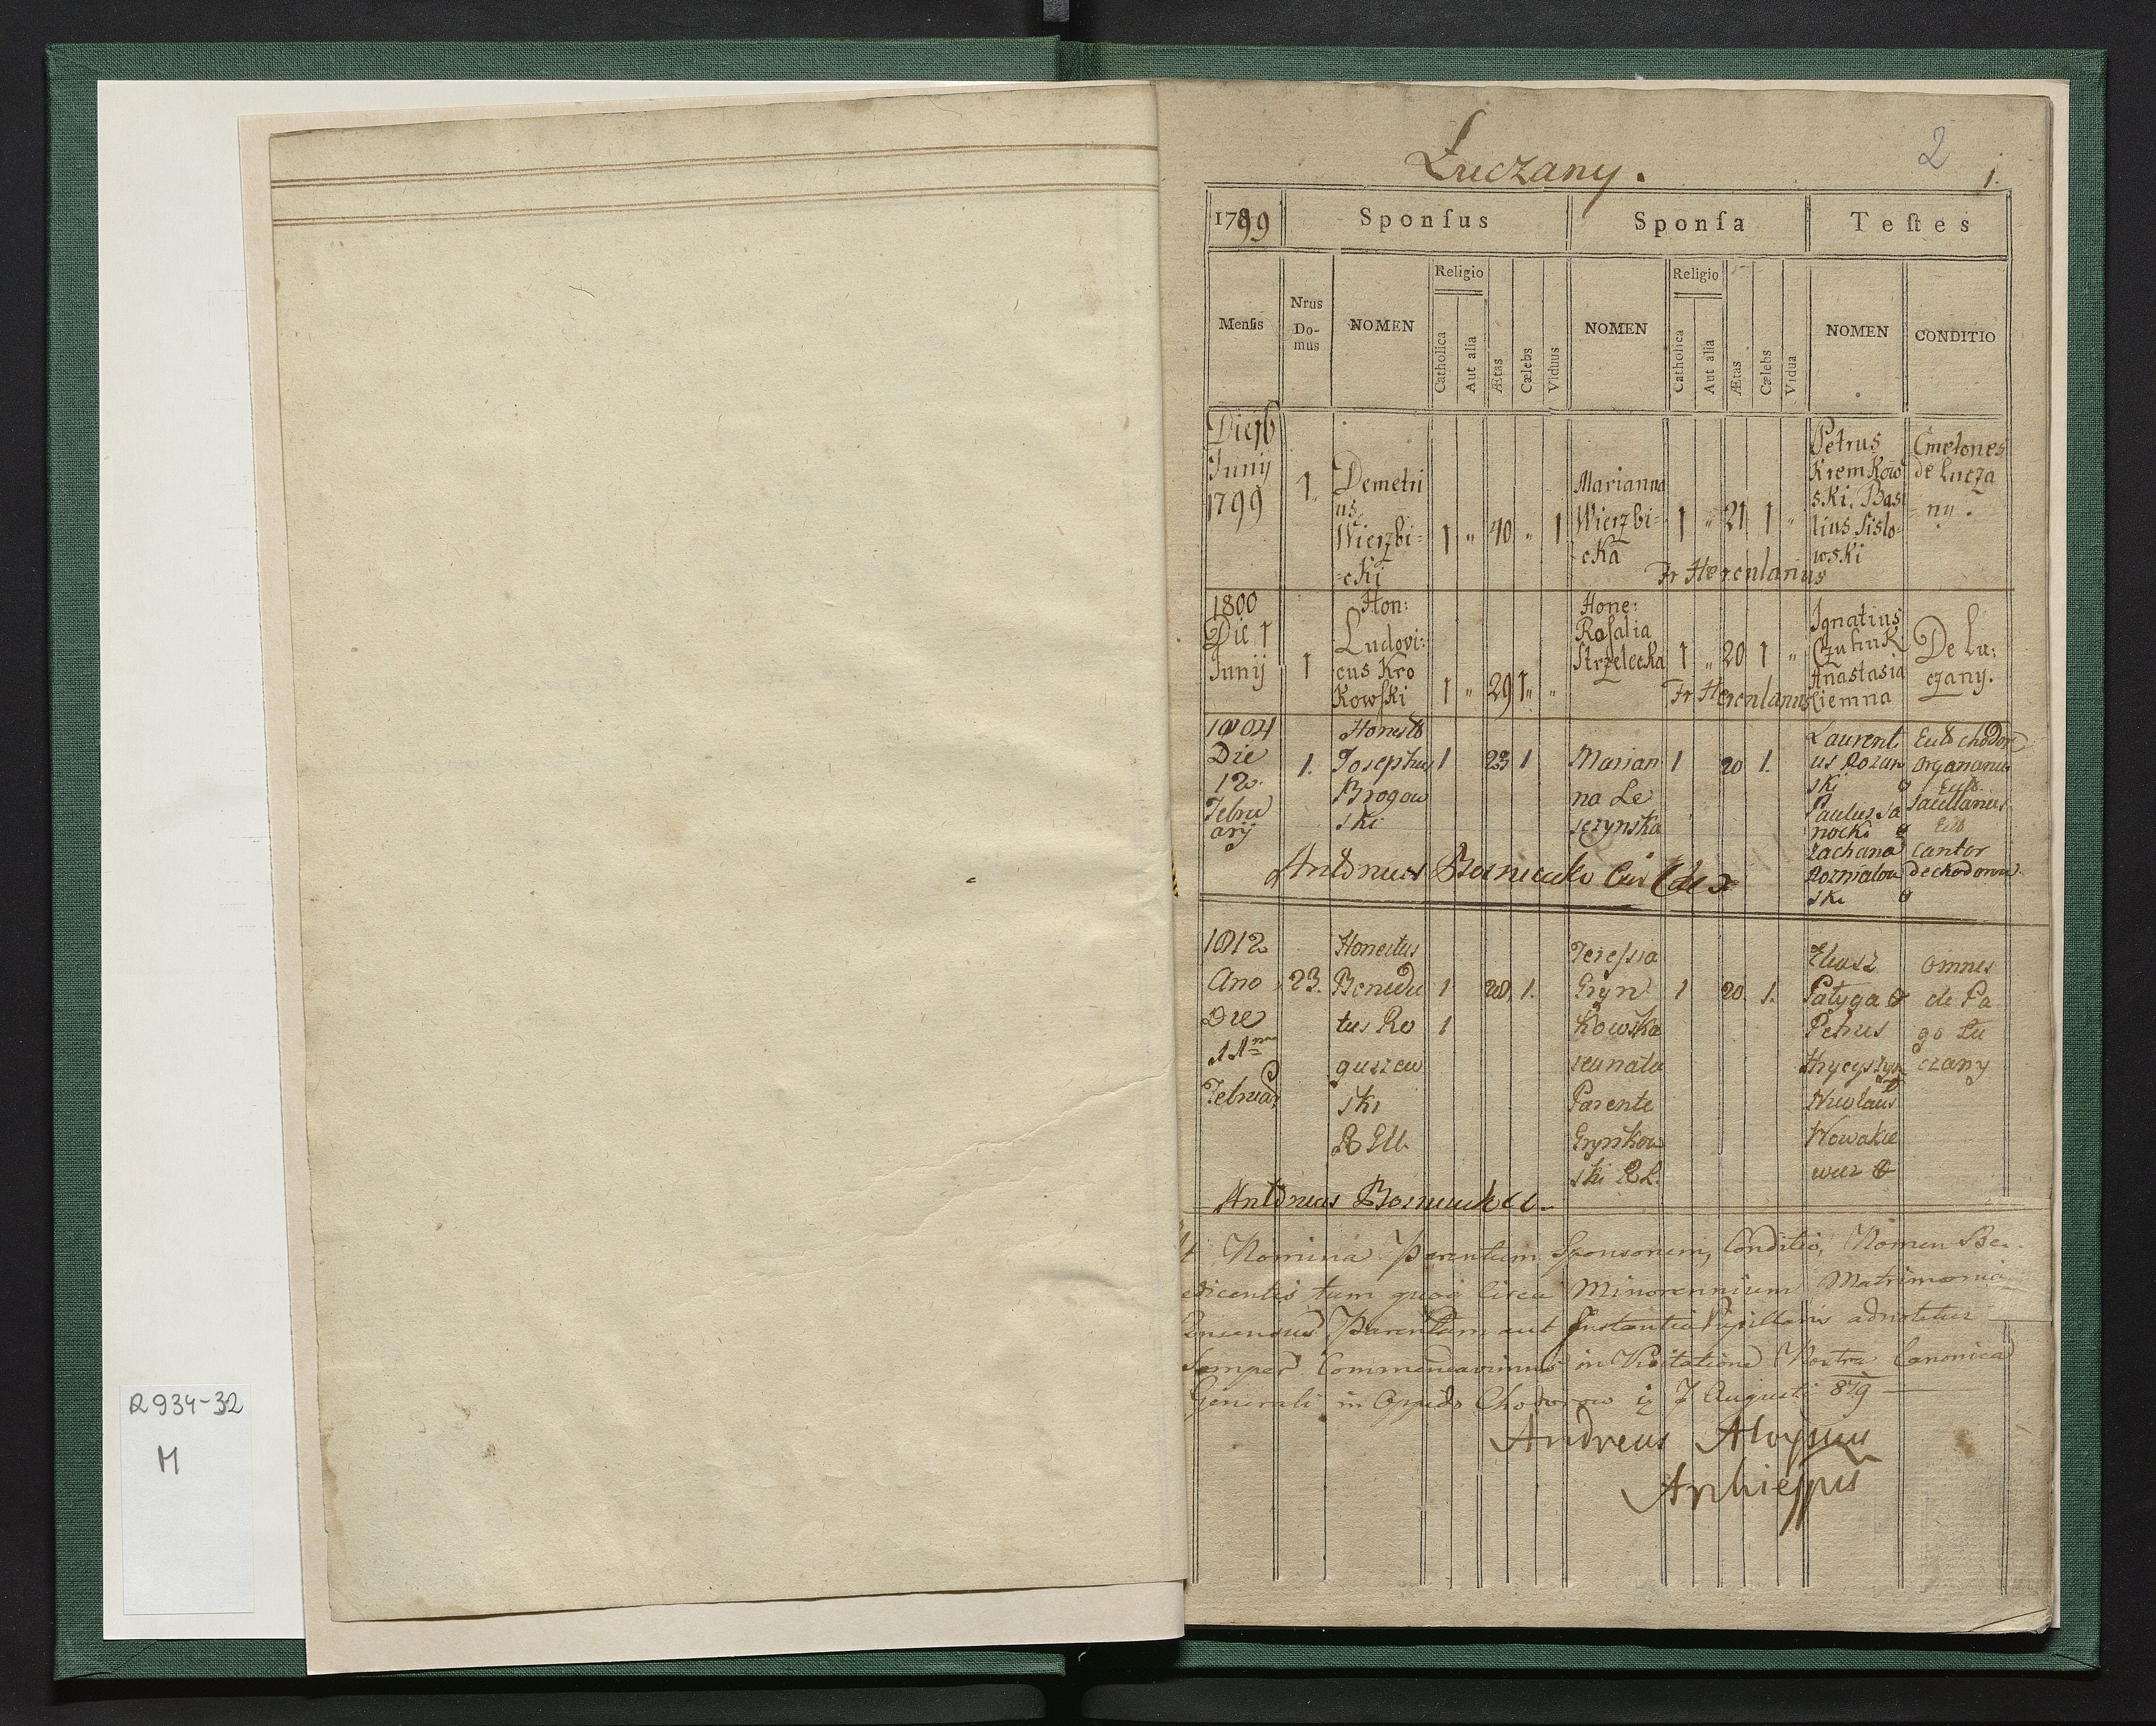 R934-32
M
2
Łuczany.
1.
1799 Sponſus Sponſa Teſtes
Menſis Nrus Do-mus NOMEN Religio Catholica Aut alia Ætas Cælebs Viduus NOMEN Religio Catholica Aut alia Ætas Cælebs Vidua NOMEN CONDITIO
Die 16
Junij
1799
1.
Demetri
us
Wierzbi=
=cki
1 " 40 " 1
Marianna
Wierzbi=
cka
1 " 21 1 "
Petrus
Kremkow
ski, Basi
lius Sislo-
wski
Cmetones
de Lucza
=ny.
Fr Herculanus
1800
Die 1
Junij
1
Hon:
Ludovi:
cus Kro
Kowſki
1 " 29 1 " "
Hone:
Roſalia
Strzelecka
1 " 20 1 "
Ignatius
Anastasia
Ciemna
De Lu:
czany.
Fr Herculanus
1804
Die
12
Febru
arij
1.
Josephus
Brogow
ski
1 23 1
Marian
na Le
sczynska
1 20 1.
Laurenti
us Rozan
ski
Paulus Sa
nocki
Zacharia
ski
Organarius
Sacellanius
Cantor
de Chodorow
Antonius
1812
Ano
Die
11ma
Februar
23.
Honestus
Benedic
tus Ro
guszew
ski
1 28 1.
1
Teressia
Gryn
kowska
seu nata
Parente
Grynkow
ski
1 20 1.
Eliasz
Patyga
Petrus
Hrycyszyn
Nicolaus
Nowakie
wicz
omnes
de Pa
go Łu
czany
Antonius
Nomina Parentum Sponsorum, Conditio, Nomen Be-
dicentis tum quoi circa Minorennium Matrimonia
Parentum aut Instantia Pupillaris adnotetur
Semper Commendavimus in Visitatione Nostra Canonica
Generali in Oppido Chodorow 7 Augusti 819
Andreas Aloysius
Archieppus